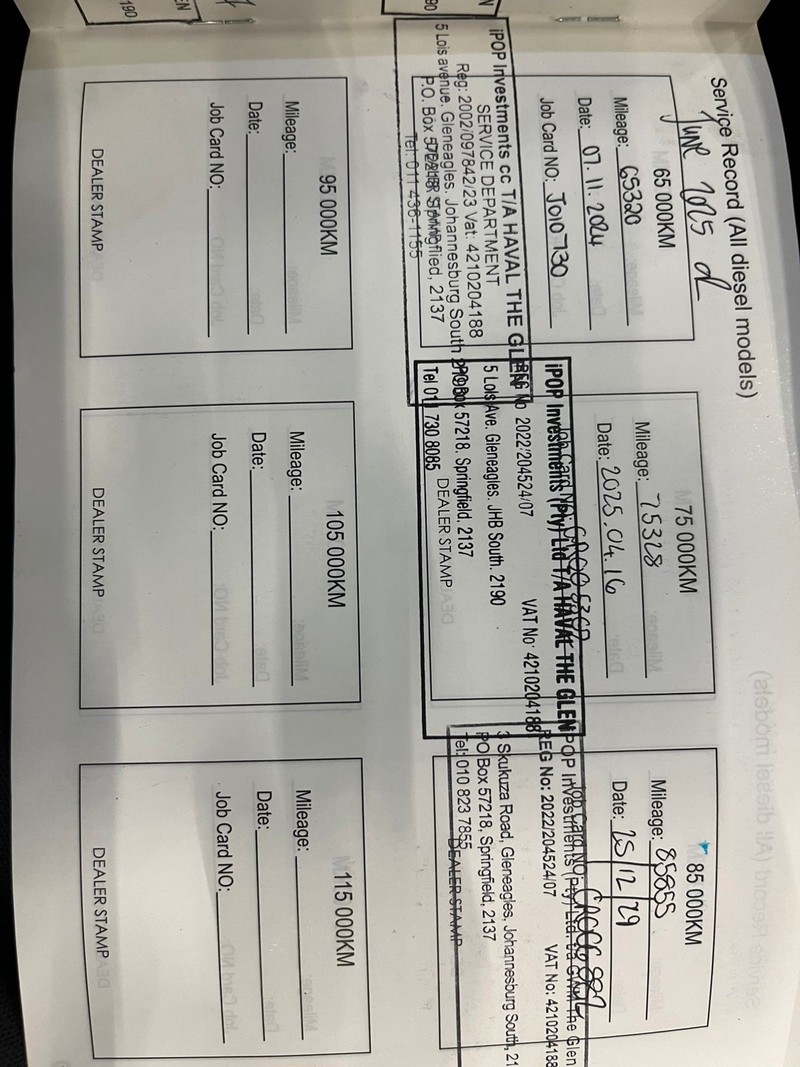 Service Record (All diesel models)
June 2025
65 000KM
Mileage: 65320
Date: 07.11.2024
Job Card NO: J010730
iPOP Investments cc T/A HAVAL THE GLEN
SERVICE DEPARTMENT
Reg: 2002/097842/23 Vat: 4210204188
5 Lois avenue. Gleneagles. Johannesburg South
P.O. Box Springflied, 2137
Tel: 011 436-1155
DEALER STAMP
75 000KM
Mileage: 75328
Date: 2025.04.16
Job Card NO:
iPOP Investments (Pty) Ltd T/A HAVAL THE GLEN
REG No 2022/204524/07 VAT No: 4210204188
5 Lois Ave. Gleneagles. JHB South. 2190
PO Box 57218. Springfield. 2137
Tel 011 730 8085
DEALER STAMP
85 000KM
Mileage: 85855
Date: 25/12/29
Job Card NO:
POP Investments (Pty) Ltd. The Glen
REG No: 2022/204524/07 VAT No: 4210204188
3 Skukuza Road, Gleneagles, Johannesburg South, 21
PO Box 57218, Springfield, 2137
Tel: 010 823 7855
DEALER STAMP
95 000KM
Mileage:
Date:
Job Card NO:
DEALER STAMP
105 000KM
Mileage:
Date:
Job Card NO:
DEALER STAMP
115 000KM
Mileage:
Date:
Job Card NO:
DEALER STAMP